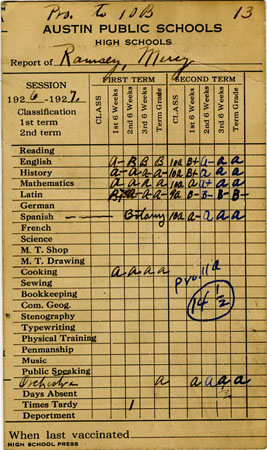 Pro. to 10B 13
AUSTIN PUBLIC SCHOOLS
HIGH SCHOOLS
Report of Ramsey, Mercy
SESSION FIRST TERM SECOND TERM
1926-1927. CLASS 1st 6 Weeks 2nd 6 Weeks 3rd 6 Weeks Term Grade CLASS 1st 6 Weeks 2nd 6 Weeks 3rd 6 Weeks Term Grade
Classification
1st term
2nd term
Reading
English A- B B B 10a B+ a- a a
History a a- a- a- 10a B+ a a a
Mathematics a a a a 10a a+ a a
Latin a- a- a- 9a B- B- B- B-
German
Spanish 10a a- a a a
French
Science
M. T. Shop
M. T. Drawing
Cooking a a a a
Sewing
Bookkeeping
Com. Geog. 14 1/2
Stenography
Typewriting
Physical Training
Penmanship
Music
Public Speaking
Orchestra a a a a a
Days Absent 2
Times Tardy 1
Deportment
When last vaccinated
HIGH SCHOOL PRESS